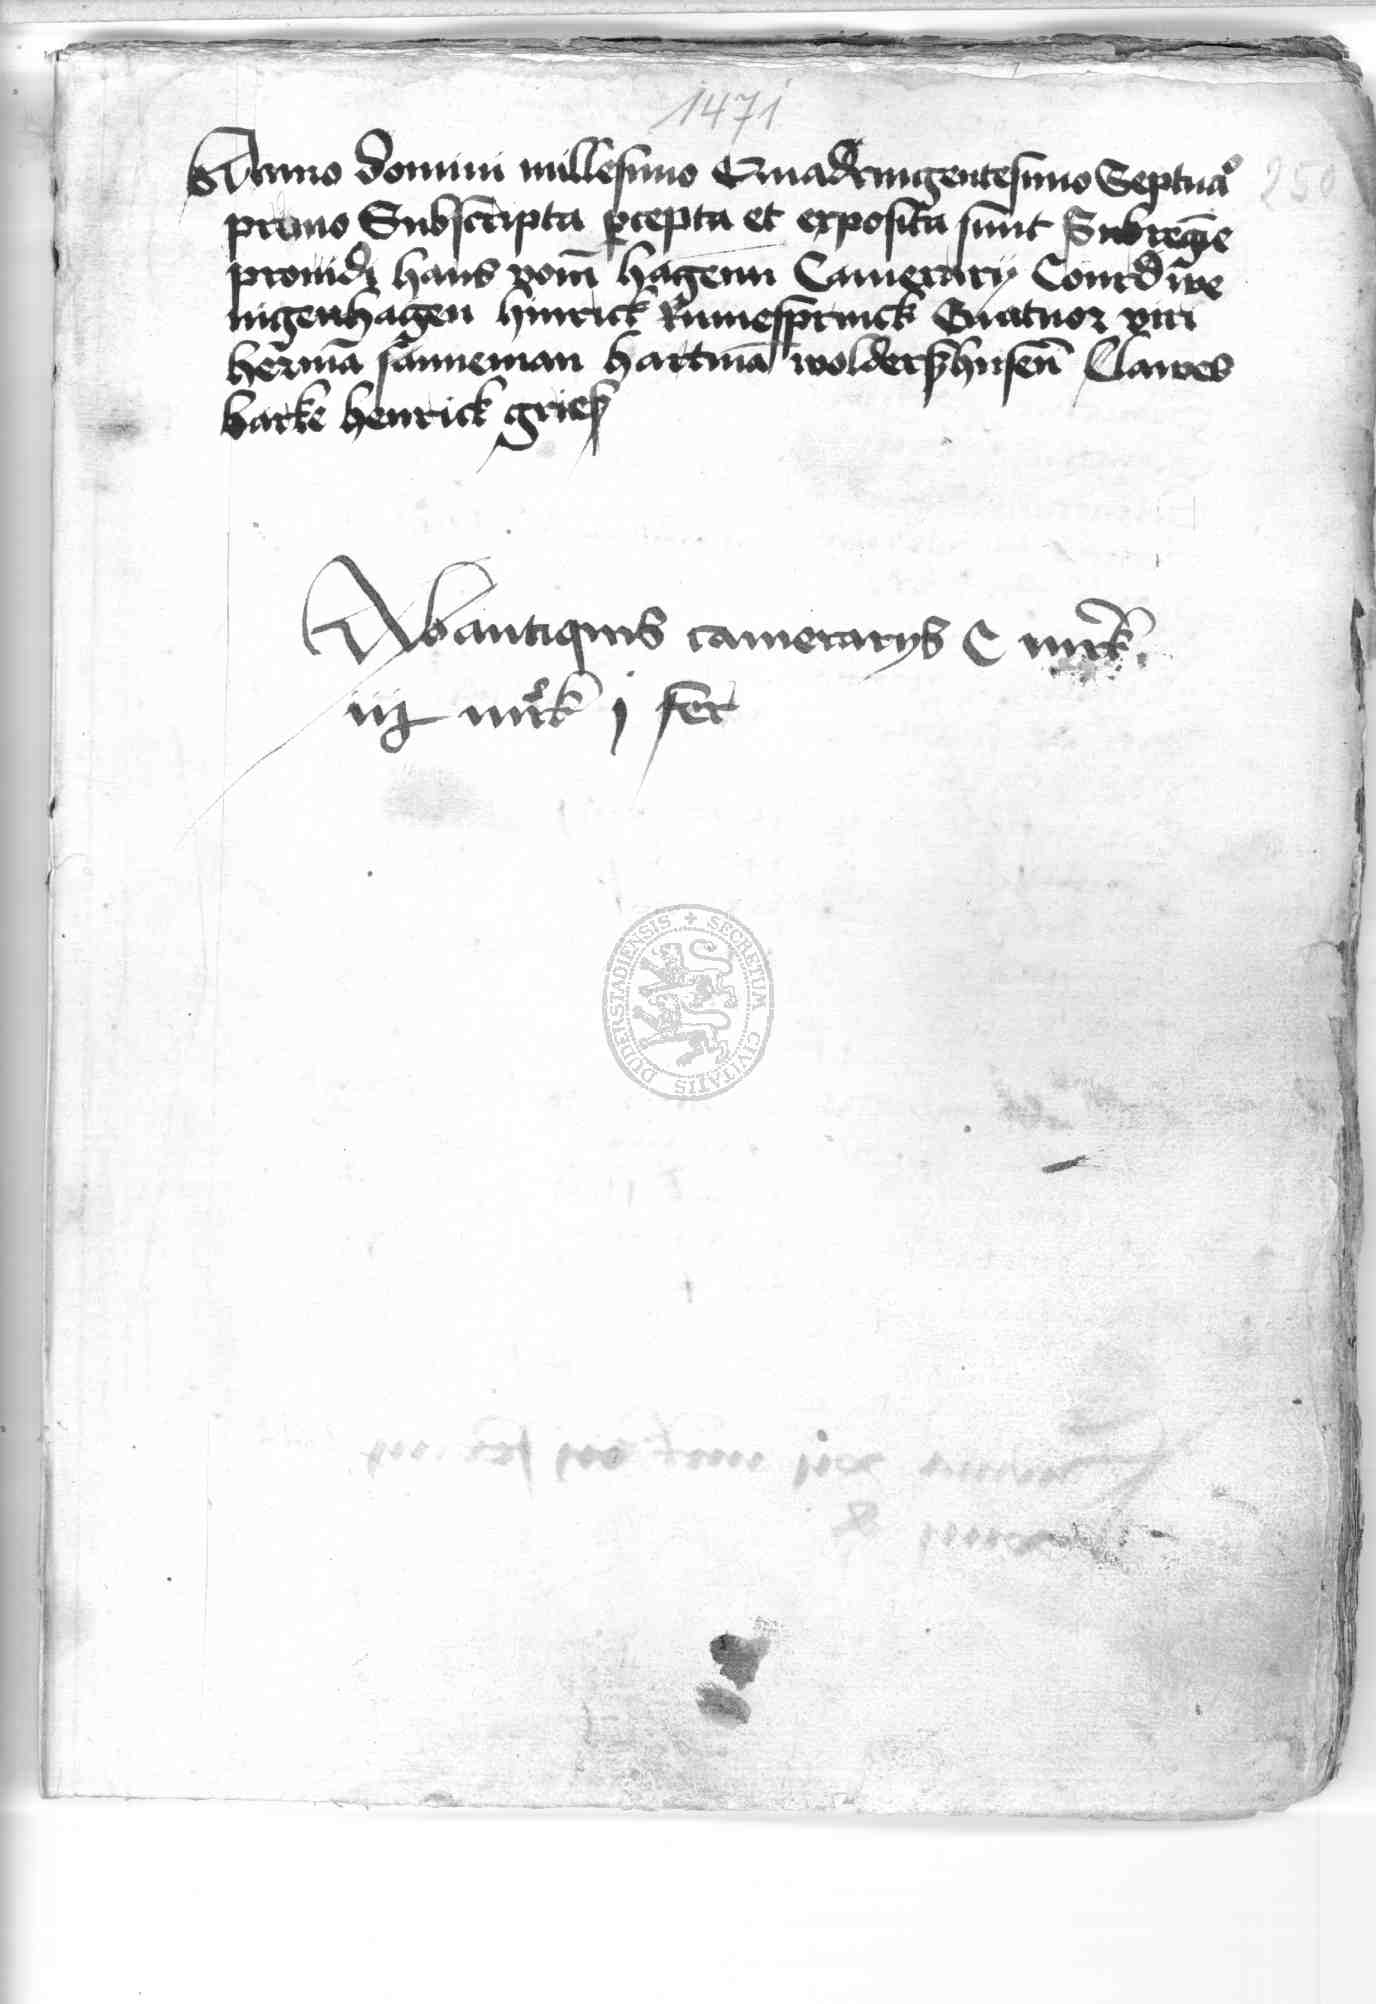 1471
250
Anno domini millesimo Quadringentesimo Septua͛º
primo Subscripta p̲cepta et exposita sunt Subregīe
providi hans vom̄ hagenn Camerarij Courd we
nigenhagen hinrick Rumesprinck Quatuor viri
herma̅ sanneman hartma̅ woldershusen̄ Clawes
barke henrick gries
Ab antiquis camerarijs C mr̄k
iij mr̄k j fert
SECRETUM CIVITATIS DUDERSTADIENSIS